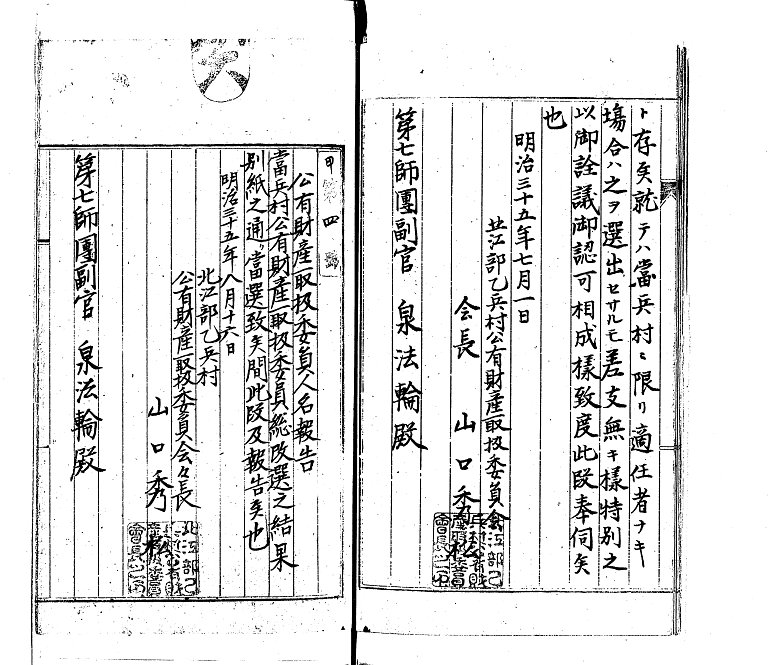 ト存矣就テハ當兵村ニ限リ適任者ナキ
塲合ハ之ヲ選出セサルモ差支無キ樣特別之
以御詮議御認可相成樣致度此段奉伺矣
也
明治三十五年七月一日
北江部乙兵村公有財産取扱委員会
会長 山口秀
第七師團副官 泉法輪殿
甲第四號
公有財産取扱委員人名報告
當兵村公有財産取扱委員総改選之結果
別紙之通リ當選致矣間此段及報告矣也
明治三十五年八月十六日
北江部乙兵村
公有財産取扱委員会々長
山口秀
第七師團副官 泉法輪殿